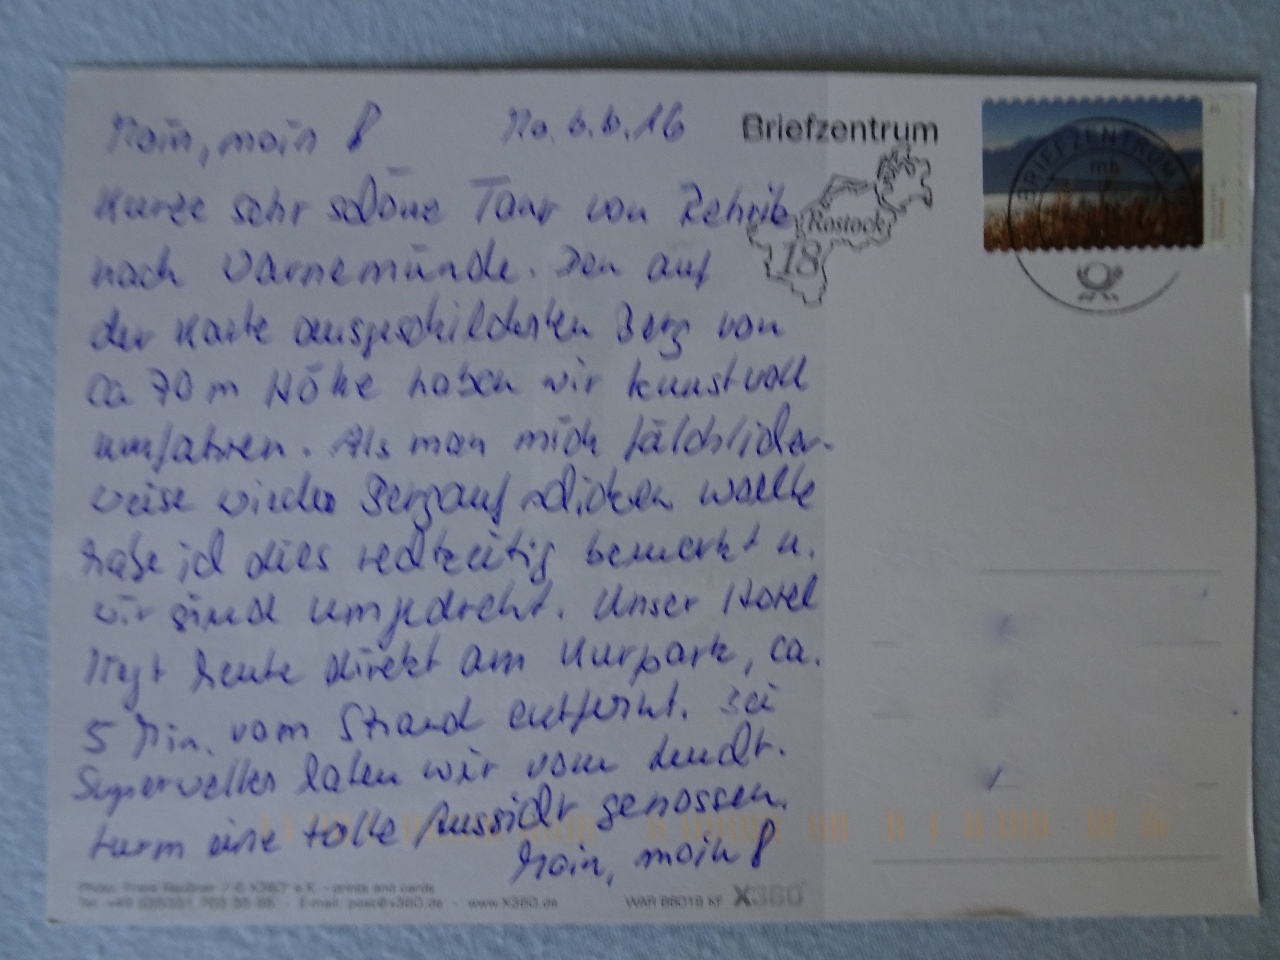 Moin, moin! Mo. 6.6.16
Kurze sehr schöne Tour von Rehrik
nach Warnemünde. Den auf
der Karte ausgeschilderten Berg von
ca 70 m Höhe haben wir kunstvoll
umfahren. Als man mich fälschlicher-
weise wieder Bergauf schicken wollte
habe ich dies rechtzeitig bemerkt u.
wir sind umgedreht. Unser Hotel
liegt heute direkt am Kurpark, ca.
5 Min. vom Strand entfernt. Bei
Superwetter haben wir vom Leucht-
turm eine tolle Aussicht genossen.
Moin, moin!
Briefzentrum
Rostock
18
BRIEFZENTRUM
mh
Photo: / © X360° e.K. - prints and cards
E-mail: post@x360.de - www.X360.de
X360°